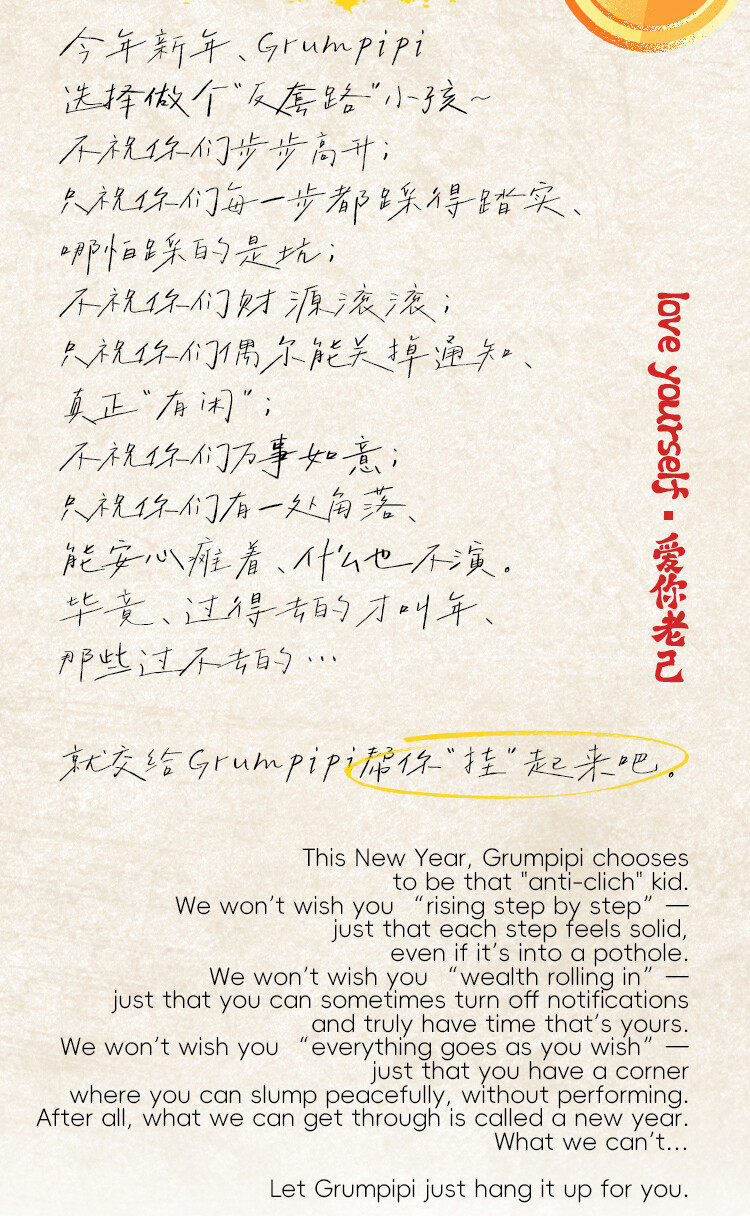 今年新年、Grumpipi
选择做个“反套路”小孩~
不祝你们步步高升；
只祝你们每一步都踩得踏实、
哪怕踩的是坑；
不祝你们财源滚滚；
只祝你们偶尔能关掉通知、
真正“有闲”；
不祝你们万事如意；
只祝你们有一处角落、
能安心瘫着、什么也不演。
毕竟、过得去的才叫年、
那些过不去的…
就交给Grumpipi帮你“挂”起来吧。
love yourself·爱你老己
This New Year, Grumpipi chooses
to be that "anti-clich" kid.
We won't wish you “rising step by step” —
just that each step feels solid,
even if it's into a pothole.
We won't wish you “wealth rolling in” —
just that you can sometimes turn off notifications
and truly have time that's yours.
We won't wish you “everything goes as you wish” —
just that you have a corner
where you can slump peacefully, without performing.
After all, what we can get through is called a new year.
What we can't...
Let Grumpipi just hang it up for you.